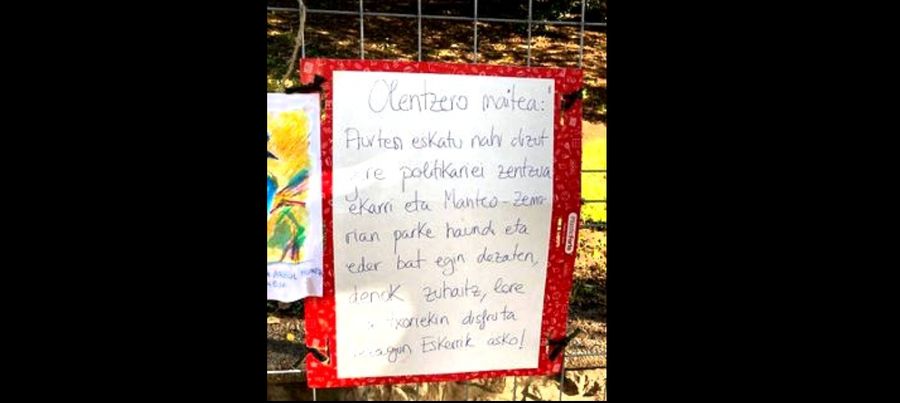 Olentzero maitea:
Aurten eskatu nahi dizut
gure politikariei zentzua
ekarri eta Manteo-Zemo-
rian parke haundi eta
eder bat egin dezaten,
denok zuhaitz, lore
txoriekin disfruta
Eskerrik asko!